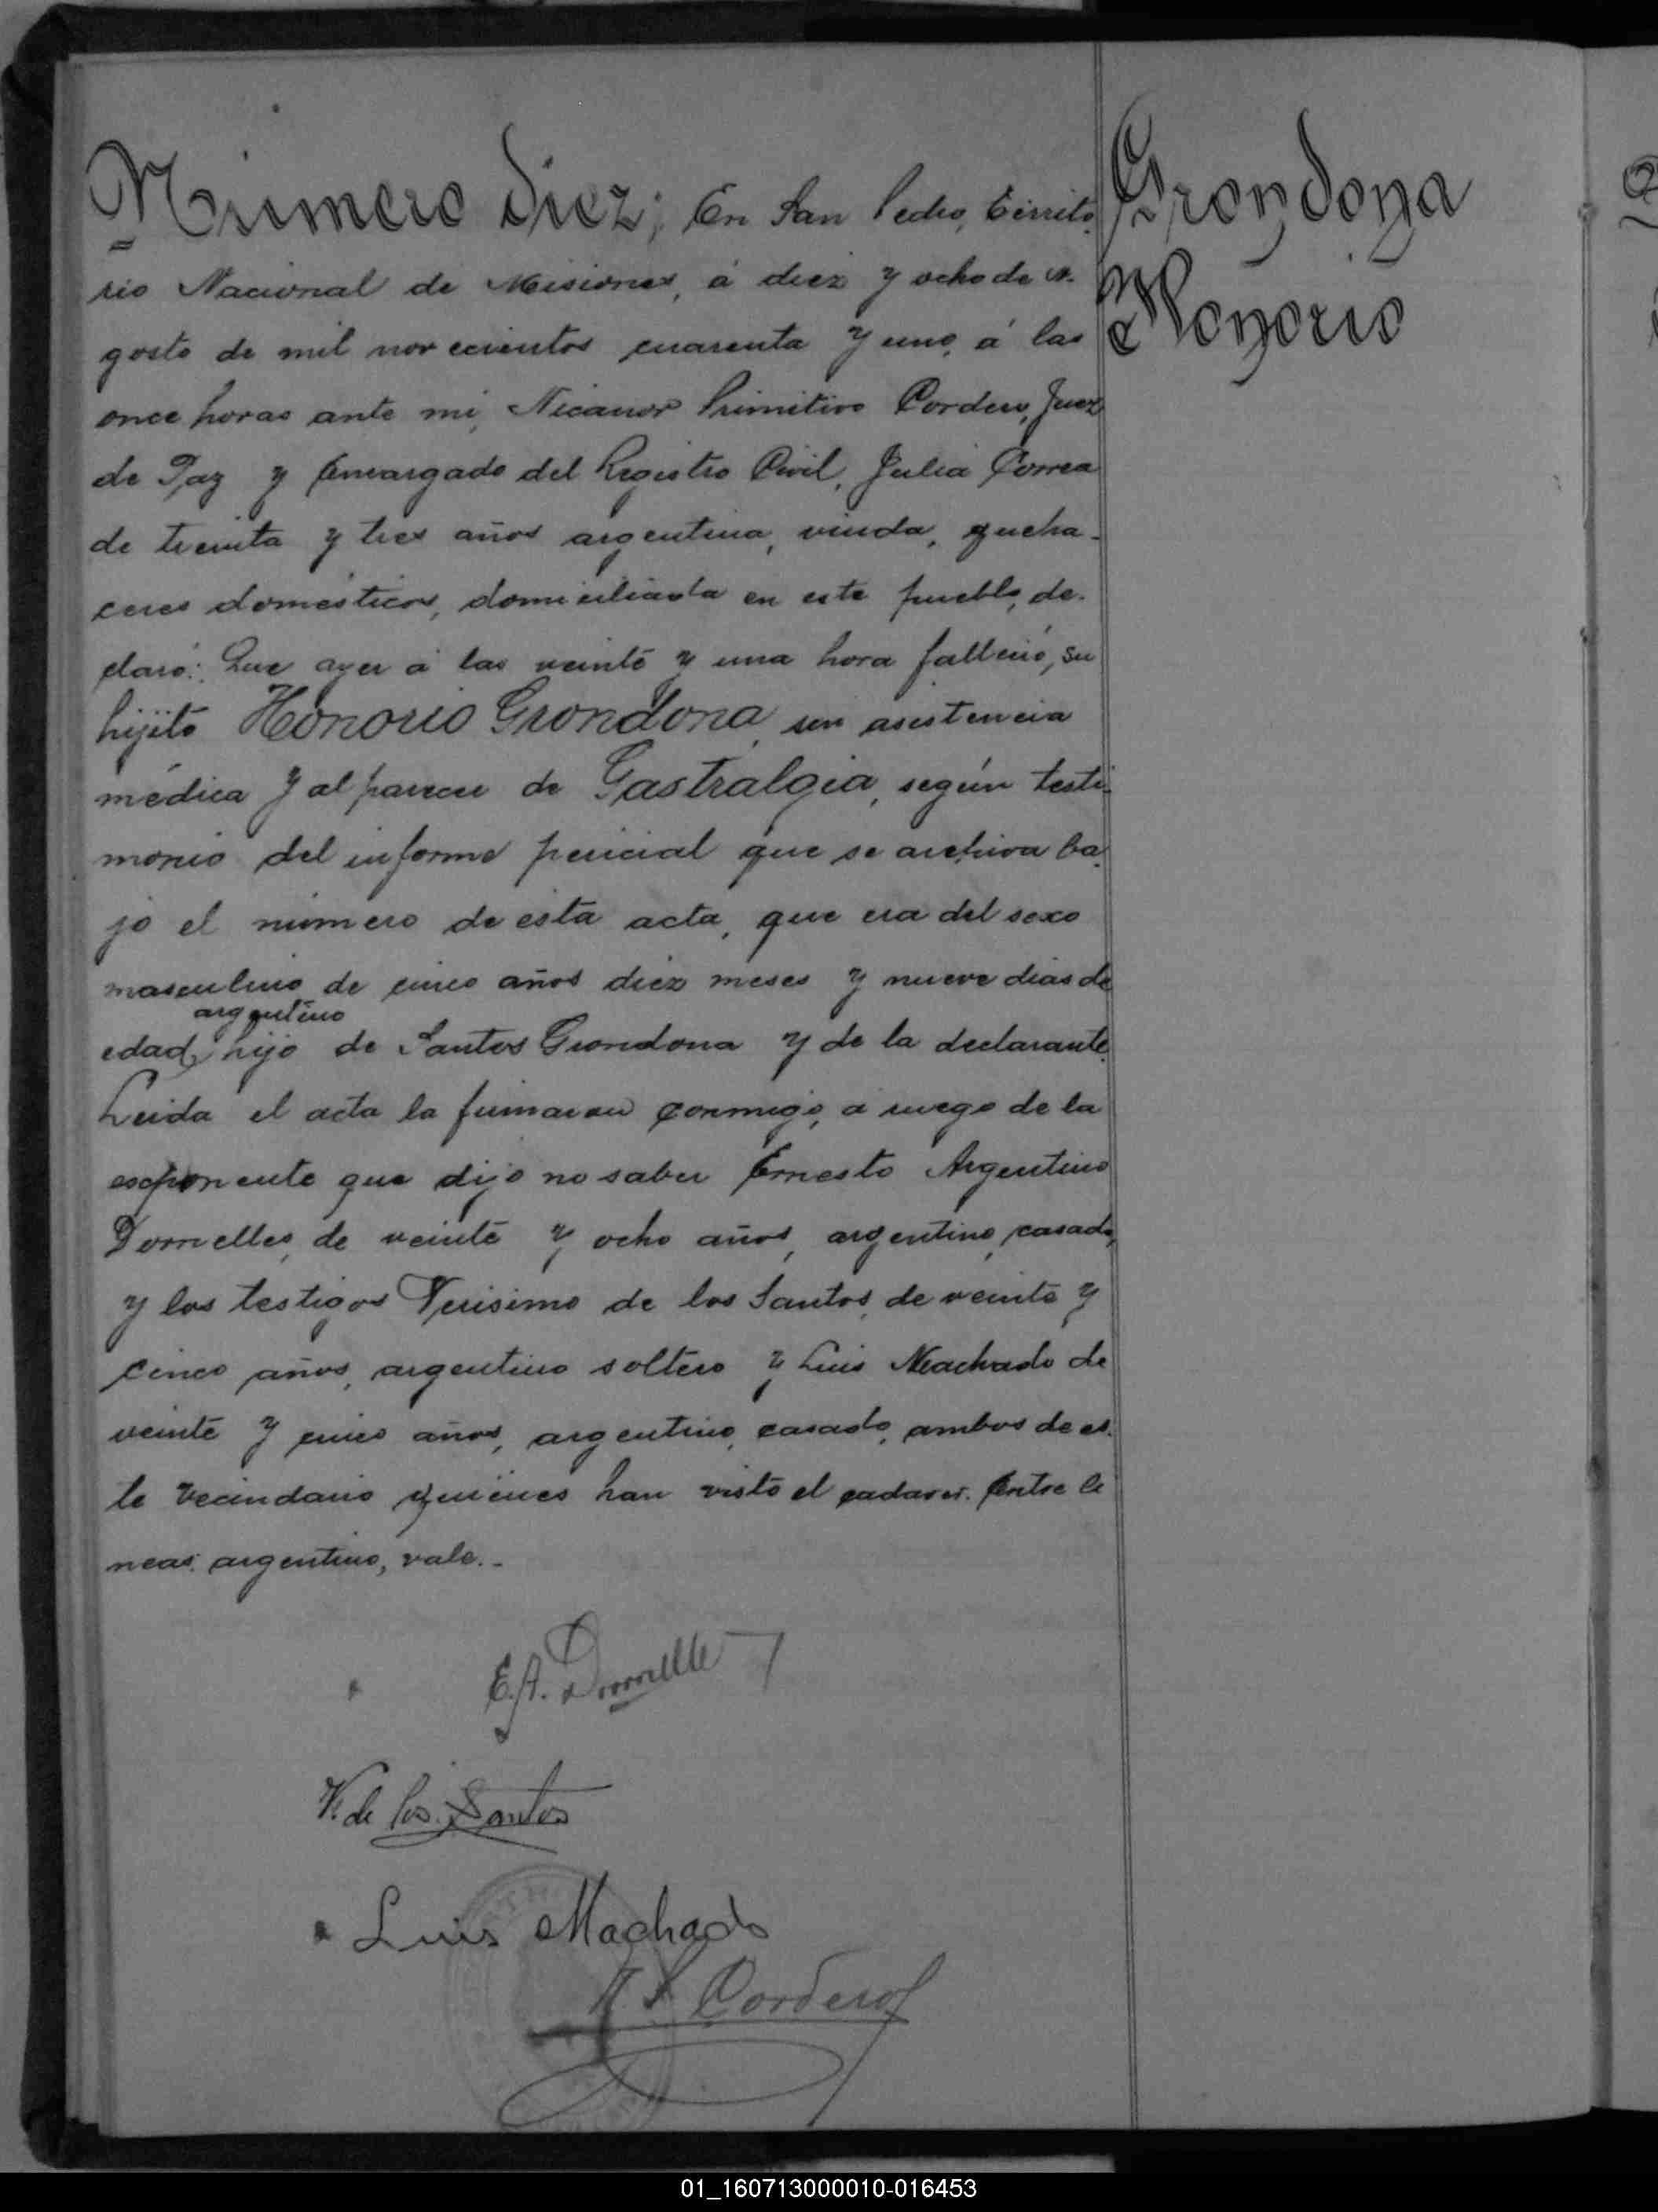 Número diez; En San Pedro, Territo-
rio Nacional de Misiones, á diez y ocho de A-
gosto de mil novecientos cuarenta y uno, á las
once horas ante mi, Nicanor Primitivo Cordero, Juez
de Paz y Encargado del Registro Civil, Julia Correa
de treinta y tres años argentina, viuda, queha-
ceres domésticos, domiciliada en este pueblo, de-
claró: Que ayer á las veinte y una hora falleció, su
hijito Honorio Grondona, sin asistencia
médica y al parecer de Gastralgia, según testi-
monio del informe pericial que se archiva ba-
jo el número de esta acta, que era del sexo
masculino de cinco años diez meses y nueve dias de
argentino
edad, hijo de Santos Grondona y de la declarante.
Leida el acta la firmaron conmigo, á ruego de la
esponente que dijo no saber Ernesto Argentino
Dornelles, de veinte y ocho años, argentino, casado,
y los testigos Verisimo de los Santos, de veinte y
cinco años, argentino soltero y Luis Machado de
veinte y cinco años, argentino, casado, ambos de es-
te vecindario quiénes han visto el cadaver. Entre li
neas: argentino, vale.-
Grondona
Honorio
E.A. Dornelle
V. de los Santos
Luis Machado
N P Cordero
01_160713000010-016453